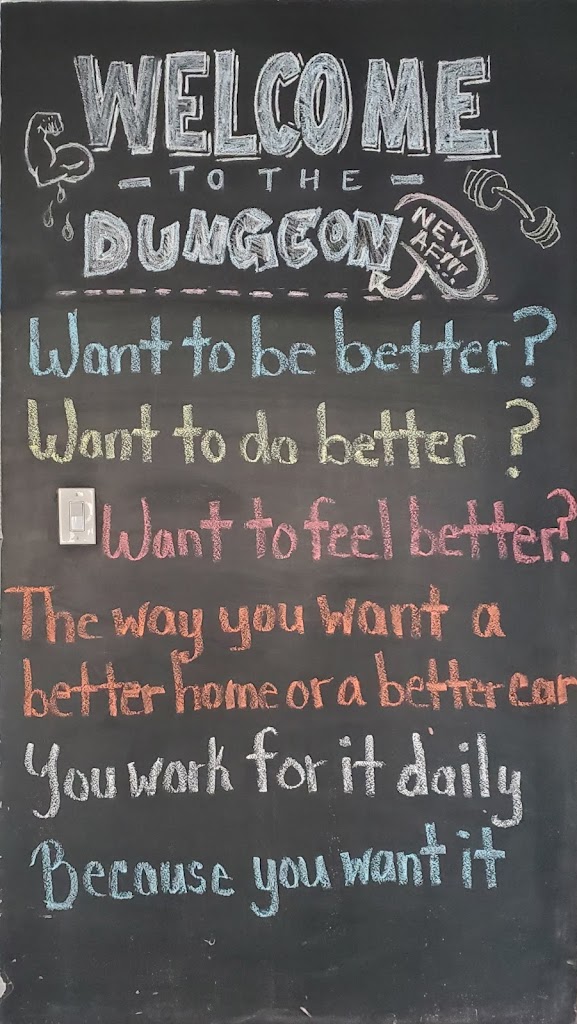 WELCOME
- TO THE -
DUNGEON
NEW
AF!!!
Want to be better?
Want to do better ?
Want to feel better?
The way you want a
better home or a better car
You work for it daily
Because you want it